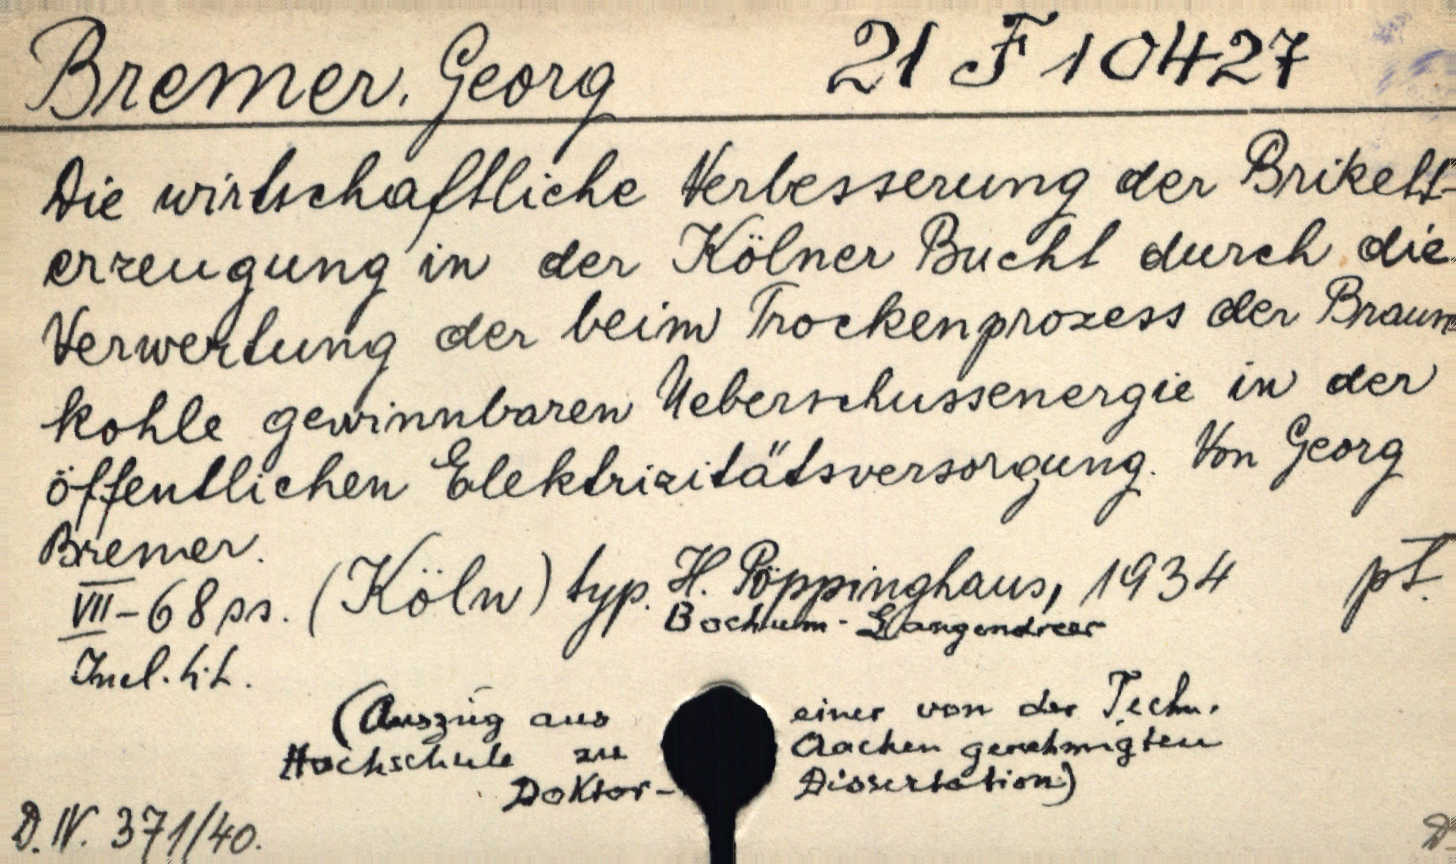 Bremer, Georg 21 F 10427
Die wirtschaftliche Verbesserung der Brikett-
erzeugung in der Kölner Bucht durch die
Verwertung der beim Trockenprozess der Braun
kohle gewinnbaren Ueberschussenergie in der
öffentlichen Elektrizitätsversorgung. Von Georg
Bremer.
VII-68 ss. (Köln) typ. H. Pöppinghaus, 1934 pt.
Bochum-Langendreer
Incl. tit.
(Auszug aus einer von der Techn.
Hochschule zu Aachen genehmigten
Doktor-Dissertation)
D. IV. 371/40. D